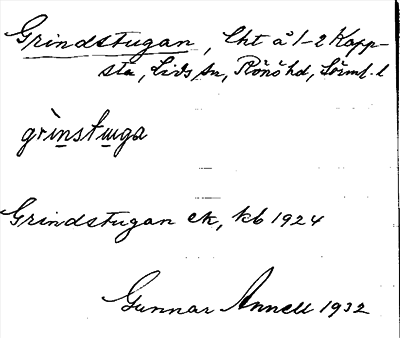 Grindstugan, lht å 1-2 Kapp-
sta, Lids sn, Rönö hd, Sörml. l
grìnstuga
Grindstugan ek, kb 1924
Gunnar Annell 1932